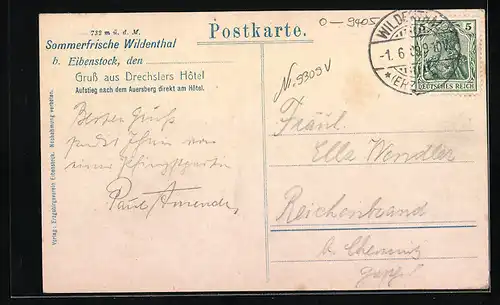 732 m ü. d. M.
Sommerfrische Wildenthal
b. Eibenstock, den
Gruß aus Drechslers Hôtel
Aufstieg nach dem Auersberg direkt am Hôtel.
Besten Gruß
sendet Ihnen von
einer Pfingstpartie
Paul
Verlag: Erzgebirgsverein Eibenstock. Nachahmung verboten.
Postkarte.
0-9405
Nr. 9309 V
WILDENTHAL
-1. 6. 09
*(ERZ
5
DEUTSCHES REICH
Fräul.
Ella Wendler
Reichenbrand
b. Chemnitz